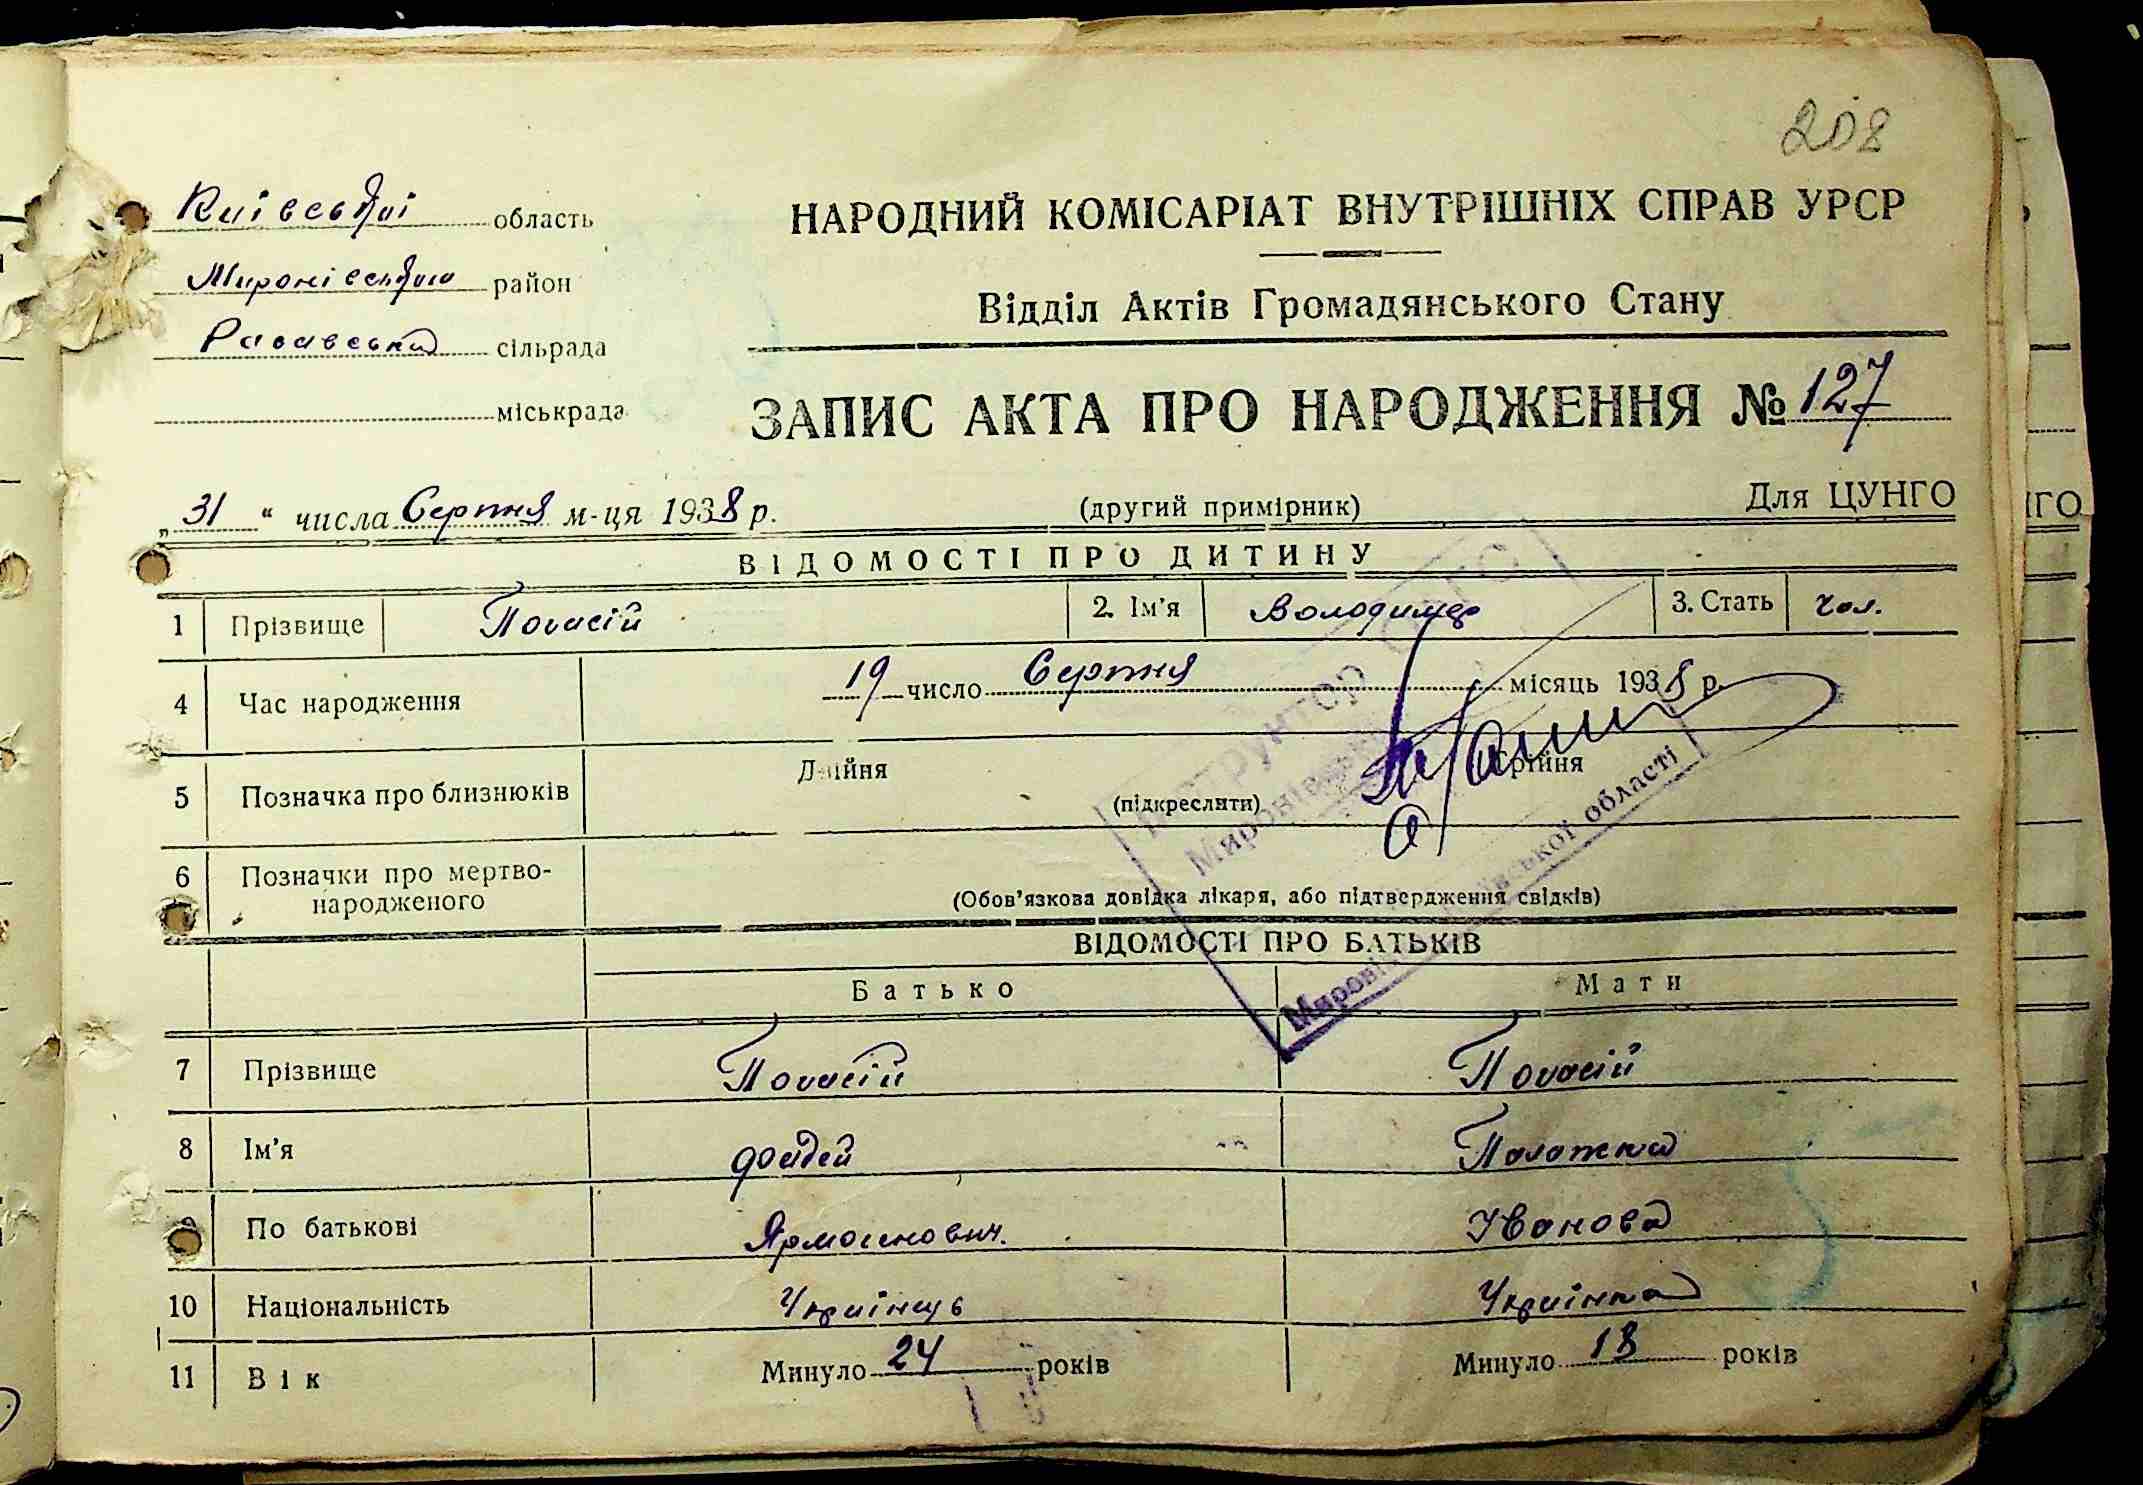 208
Київської область
Миронівського район
Расавська сільрада
міськрада
НАРОДНИЙ КОМІСАРІАТ ВНУТРІШНІХ СПРАВ УРСР
Відділ Актів Громадянського Стану
ЗАПИС АКТА ПРО НАРОДЖЕННЯ № 127
„31“ числа Серпня м-ця 1938 р. (другий примірник) Для ЦУНГО
ВІДОМОСТІ ПРО ДИТИНУ
1 Прізвище 2. Ім'я Володимир 3. Стать чол.
4 Час народження 19 число Серпня місяць 1938 р.
5 Позначка про близнюків Двійня (підкреслити) Трійня
6 Позначки про мертво-
народженого (Обов'язкова довідка лікаря, або підтвердження свідків)
ВІДОМОСТІ ПРО БАТЬКІВ
Батько Мати
7 Прізвище
8 Ім'я Фадей Палажка
9 По батькові Ярмолинович. Іванова
10 Національність Українець Українка
11 Вік Минуло 24 років Минуло 18 років